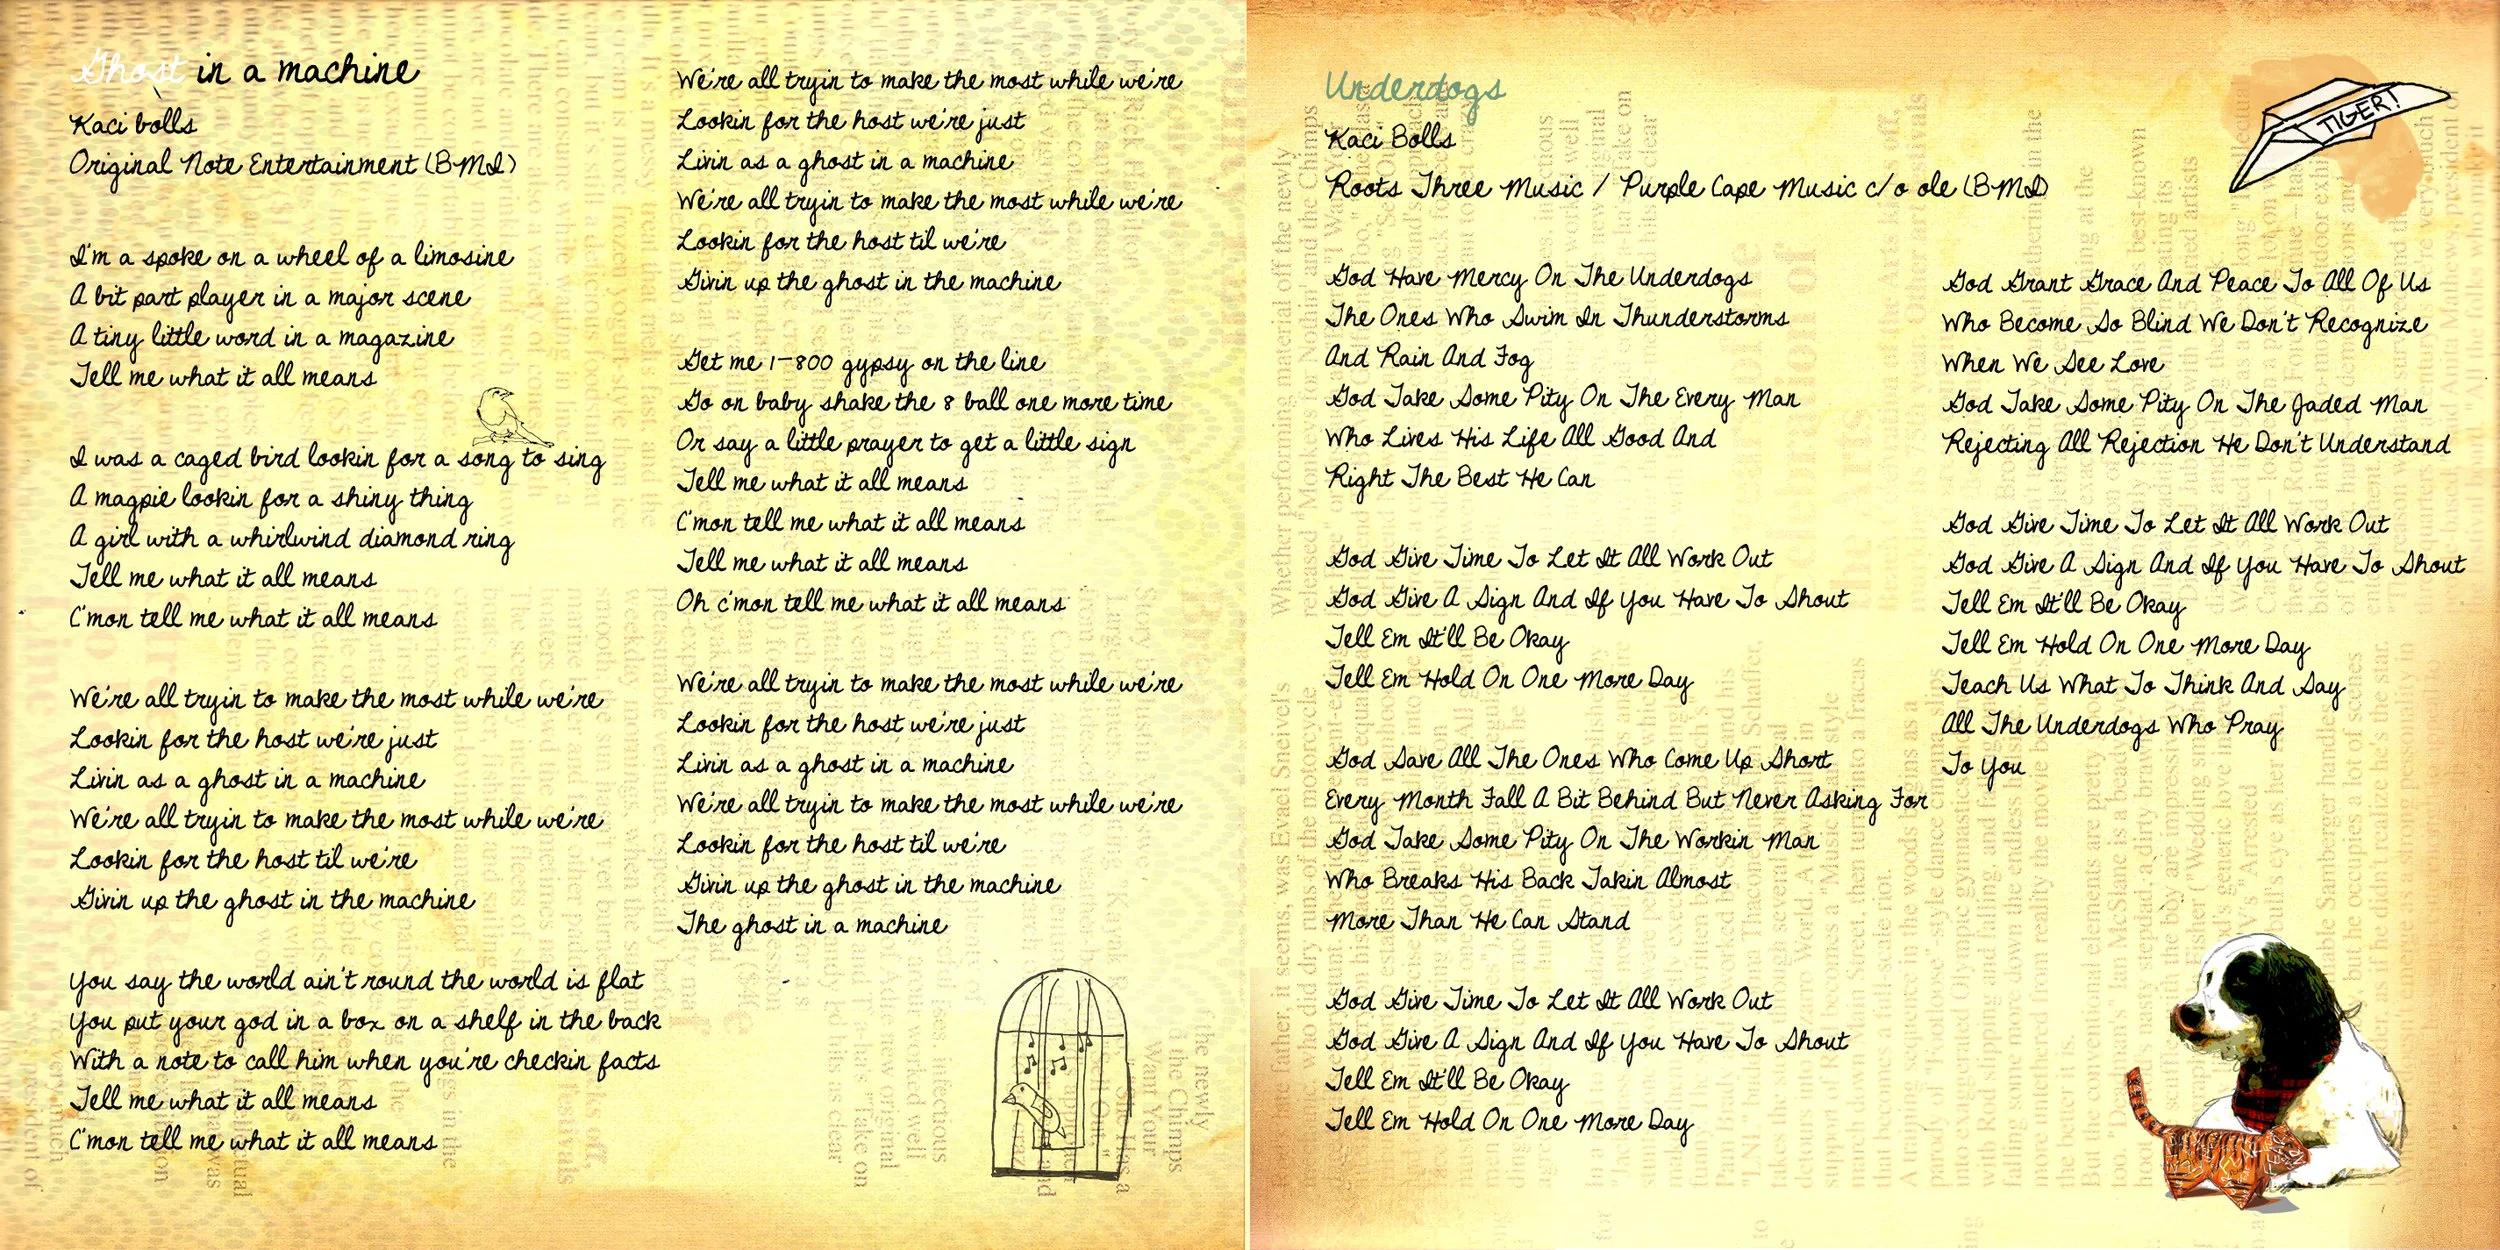 Ghost in a machine
Kaci bolls
Original Note Entertainment (BMI)
I'm a spoke on a wheel of a limosine
A bit part player in a major scene
A tiny little word in a magazine
Tell me what it all means
I was a caged bird lookin for a song to sing
A magpie lookin for a shiny thing
A girl with a whirlwind diamond ring
Tell me what it all means
C'mon tell me what it all means
We're all tryin to make the most while we're
Lookin for the host we're just
Livin as a ghost in a machine
We're all tryin to make the most while we're
Lookin for the host til we're
Givin up the ghost in the machine
You say the world ain't round the world is flat
You put your god in a box on a shelf in the back
With a note to call him when you're checkin facts
Tell me what it all means
C'mon tell me what it all means
We're all tryin to make the most while we're
Lookin for the host we're just
Livin as a ghost in a machine
We're all tryin to make the most while we're
Lookin for the host til we're
Givin up the ghost in the machine
Get me 1-800 gypsy on the line
Go on baby shake the 8 ball one more time
Or say a little prayer to get a little sign
Tell me what it all means
C'mon tell me what it all means
Tell me what it all means
Oh c'mon tell me what it all means
We're all tryin to make the most while we're
Lookin for the host we're just
Livin as a ghost in a machine
We're all tryin to make the most while we're
Lookin for the host til we're
Givin up the ghost in the machine
The ghost in a machine
Underdogs
Kaci Bolls
Roots Three Music / Purple Cape Music c/o ole (BMI)
TIGER!
God Have Mercy On The Underdogs
The Ones Who Swim In Thunderstorms
And Rain And Fog
God Take Some Pity On The Every Man
Who Lives His Life All Good And
Right The Best He Can
God Give Time To Let It All Work Out
God Give A Sign And If You Have To Shout
Tell Em It'll Be Okay
Tell Em Hold On One More Day
God Save All The Ones Who Come Up Short
Every Month Fall A Bit Behind But Never Asking For
God Take Some Pity On The Workin Man
Who Breaks His Back Takin Almost
More Than He Can Stand
God Give Time To Let It All Work Out
God Give A Sign And If You Have To Shout
Tell Em It'll Be Okay
Tell Em Hold On One More Day
God Grant Grace And Peace To All Of Us
Who Become So Blind We Don't Recognize
When We See Love
God Take Some Pity On The Jaded Man
Rejecting All Rejection He Don't Understand
God Give Time To Let It All Work Out
God Give A Sign And If You Have To Shout
Tell Em It'll Be Okay
Tell Em Hold On One More Day
Teach Us What To Think And Say
All The Underdogs Who Pray
To You